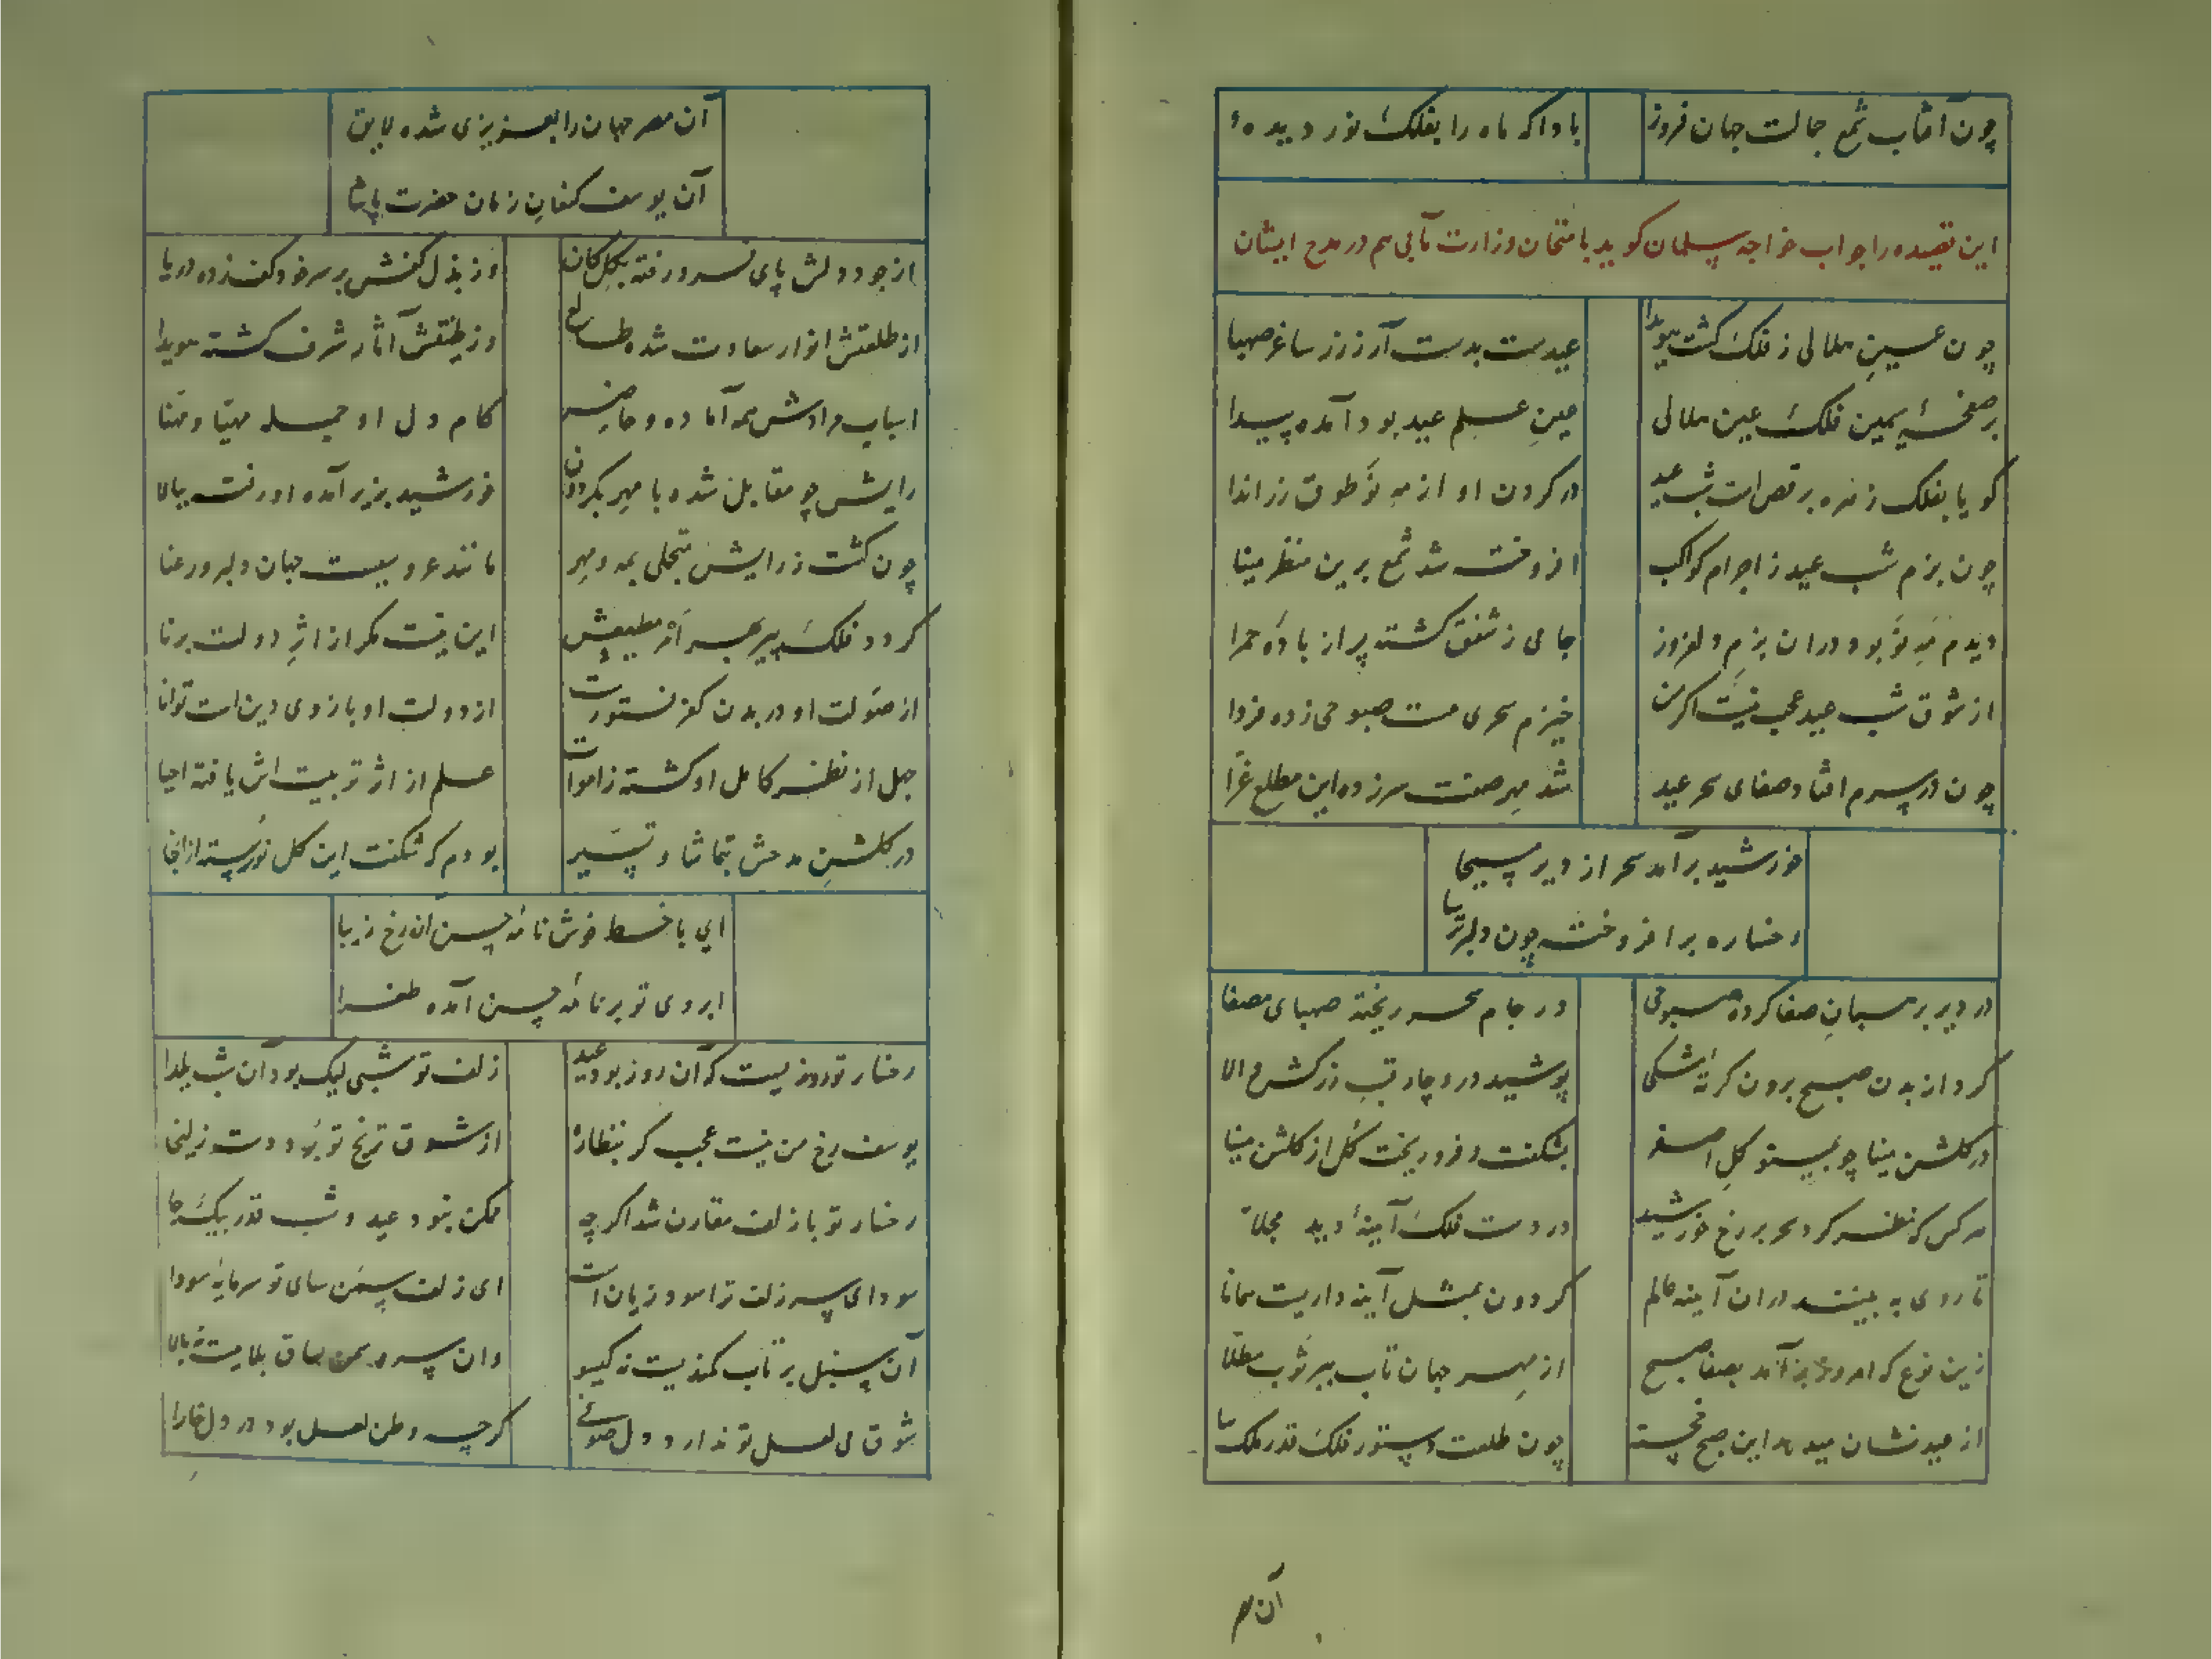 چون آفتاب شمع جمالت جهان فروز
بادا که ماه را بفلک نور دیدهٔ
این قصیده را جواب خواجه سلمان کوید بامتحان وزارت مآبی هم در مدح ایشان
چون عین هلالی ز فلک کشت هویدا
عیدست بدست آر ز زر ساغر صهبا
بر صفحهٔ سیمین فلک عین هلالی
عین علم عید بود آمده پیدا
کویا بفلک زهره برقص است شب عید
در کردن او از مه نو طوق زر اندا
چون بزم شب عید ز اجرام کواکب
افروخته شد شمع برین منظر مینا
دیدم مه نو بود دران بزم دلفروز
جامی ز شفق کشته پر از بادهٔ حمرا
از شوق شب عید عجب نیست اکر من
خیزم سحری مست صبوحی زده فردا
چون در سرم افتاد صفای سحر عید
شد مهر صفت سرزده این مطلع غرّا
خورشید برآمد سحر از دیر مسیحا
رخساره برافروخته چون دلبر ترسا
در دیر برهمان صفا کرده صبوحی
در جام سحر ریخته صهبای مصفا
کرد از بدن صبح برون کرتهٔ مشکی
پوشید درو چار قب زرکش والا
در کلشن مینا چو بهی نو کل اصفر
بشکفت و فرو ریخت کل از کلشن مینا
هر کس که نظر کرد سحر بر رخ خورشید
در دست فلک آینهٔ دید مجلّا
تا روی به بینند دران آینه عالم
کردون بمثل آینه داریست همانا
زین نوع که امروز برآمد بصفا صبح
از مهر جهان تاب ببر ثوب مطلّا
از عید نشان میدهد این صبح خجسته
چون طلعت دستور فلک قدر ملک سا
آن مصر
آن مصر جهان را بعزیزی شده لایق
آن یوسف کنعان زمان حضرت پاشا
از جود دلش پای فرو رفته بکل کان
وز بذل کفش بر سر خود کف زده دریا
از طلعتش انوار سعادت شده طالع
وز طینتش آثار شرف کشته هویدا
اسباب مرادش همه آماده و حاضر
کام دل او جمله مهیّا و مهنّا
رایش چو مقابل شده با مهر بکردون
خورشید بزیر آمده او رفت ببالا
چون کشت ز رایش متجلی مه و مهر
مانند عروسیست جهان دلبر و رعنا
کردد فلک پیر بهر امر مطیعش
این نیست مکر از اثر دولت برنا
از صولت او در بدن کفر فتورست
از دولت او بازوی دین است توانا
جهل از نظر کامل او کشته ز اموات
علم از اثر تربیت اش یافته احیا
در کلشن مدحش بتماشا و تبسیر
بودم که شکفت این کل نورسته از انجا
ای با خط خوش نامهٔ حسن آن رخ زیبا
ابروی تو بر نامهٔ حسن آمده طغرا
رخسار تو روزیست که آن روز بود عید
زلف تو شبی لیک بود آن شب یلدا
یوسف رخ من نیست عجب کر بنظارهٔ
از شوق ترنج تو برد دست زلیخا
رخسار تو با زلف مقارن شد اکرچه
ممکن نبود عید و شب قدر بیک جا
سودای سر زلف ترا سود زیان است
ای زلف سمن سای تو سرمایهٔ سودا
آن سنبل پر تاب کمندیست نه کیسو
وان سرو سمن ساق بلاییست نه بالا
شوق می لعل تو ندارد دل صوفی
کرچه وطن لعل بود در دل خارا